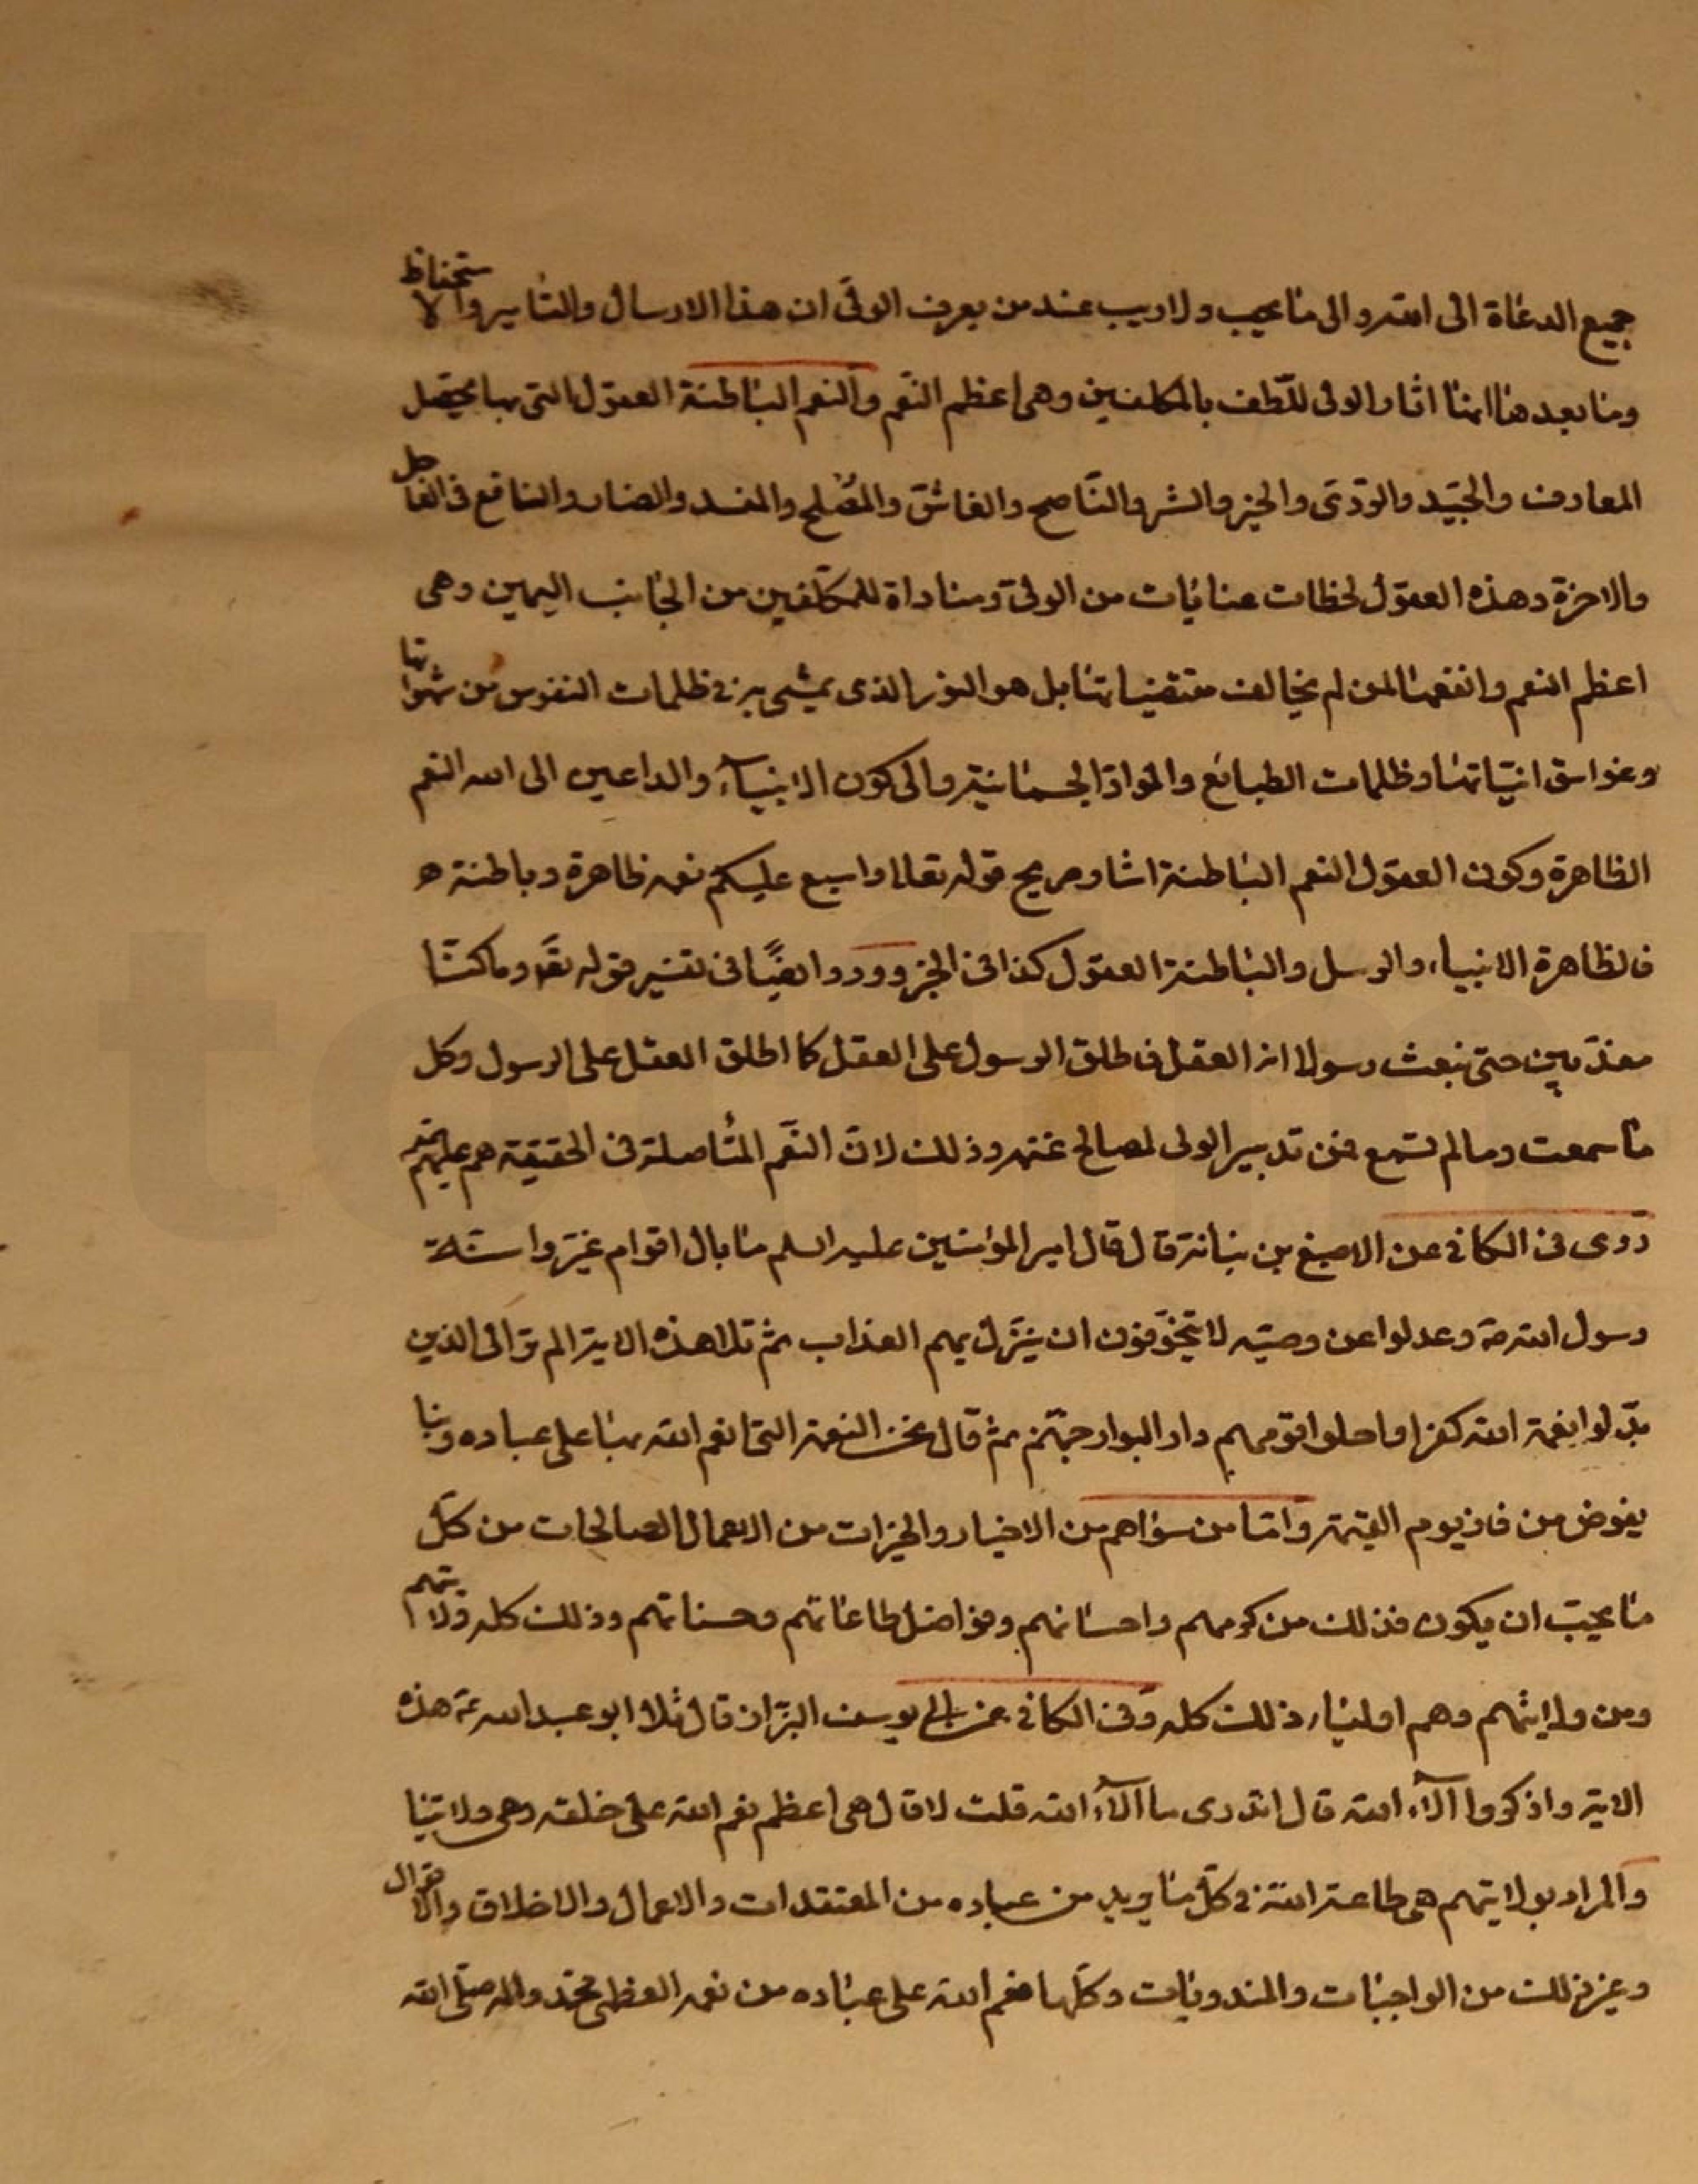 جميع الدعاة الى الله والى ما يحب ولا ريب عند من يعرف الولى ان هذا الارسال والتأسير والاستحفاظ
وما بعد هذا انما اثار الولى للّطف بالمكلفين وهى اعظم النّعم والنعم الباطنة العقول التى بها يحصل
المعارف والجيّد والرّدىّ والخير والشر والنّاصح والغاشّ والمصلح والمفسد والضار والنافع فى العاجل
والاخرة وهذه العقول لحظات عنايات من الولىّ ومناداة للمكلّفين من الجانب اليمين وهى
اعظم النعم وانفعها لمن لم يخالف مقتضياتها بل هو النور الذى يمشى به فى ظلمات النفوس من شهواتها
وغواسق انيّاتها وظلمات الطبائع والموادّ الجسمانية والى كون الانبيآء والداعين الى الله النعم
الظاهرة وكون العقول النعم الباطنة اشار صريح قوله تعالى واسبغ عليكم نعمه ظاهرة وباطنة ه
فالظاهرة الانبياء والرسل والباطنة العقول كذا فى الخبر وورد ايضًا فى تفسير قوله تعَ وما كنّا
معذّبين حتى نبعث رسولا انه العقل فاطلق الرسول على العقل كما اطلق العقل على الرسول وكل
ما سمعت وما لم تسمع فمن تدبير الولى لمصالح غنمه وذلك لانّ النّعم المتأصلة فى الحقيقة هم عليهم
روى فى الكافى عن الاصبغ بن نباتة قال قال امير المؤمنين عليه السلم ما بال اقوام غيّروا سنّة
رسول الله صَ وعدلوا عن وصيّه لا يتخوّفون ان ينزل بهم العذاب ثم تلا هذه الاية الم تر الى الذين
بدّلوا نعمة الله كفرا واحلوا قومهم دار البوار جهنّم ثم قال نحن النعمة التى انعم الله بها على عباده وبنا
يفوض من فاز يوم القيمة وامّا من سواهم من الاخيار والخيرات من الاعمال الصالحات من كلّ
ما يحبّ ان يكون فذلك من كرمهم واحسانهم وفواضل طاعاتهم وحسناتهم وذلك كله ولايتهم
ومن ولايتهم وهم اولياء ذلك كله وفى الكافى عن ابى يوسف البزّاز قال تلا ابو عبد الله عَ هذه
الاية واذكروا آلآء الله قال اتدرى ما آلآء الله قلت لا قال هى اعظم نعم الله على خلقه وهى ولايتنا
والمراد بولايتهم هى طاعة الله فى كلّ ما يريد من عباده من المعتقدات والاعمال والاخلاق والاقوال
وغير ذلك من الواجبات والمندوبات وكلّها نعم الله على عباده من نعمه العظمى محمّد واله صلّى الله